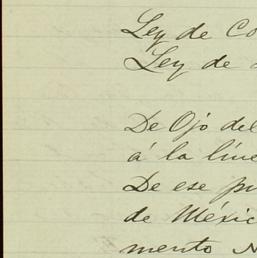 Ley de Co
Ley de
De Ojo del
á la líne
De ese pu
de Méxic
mento N